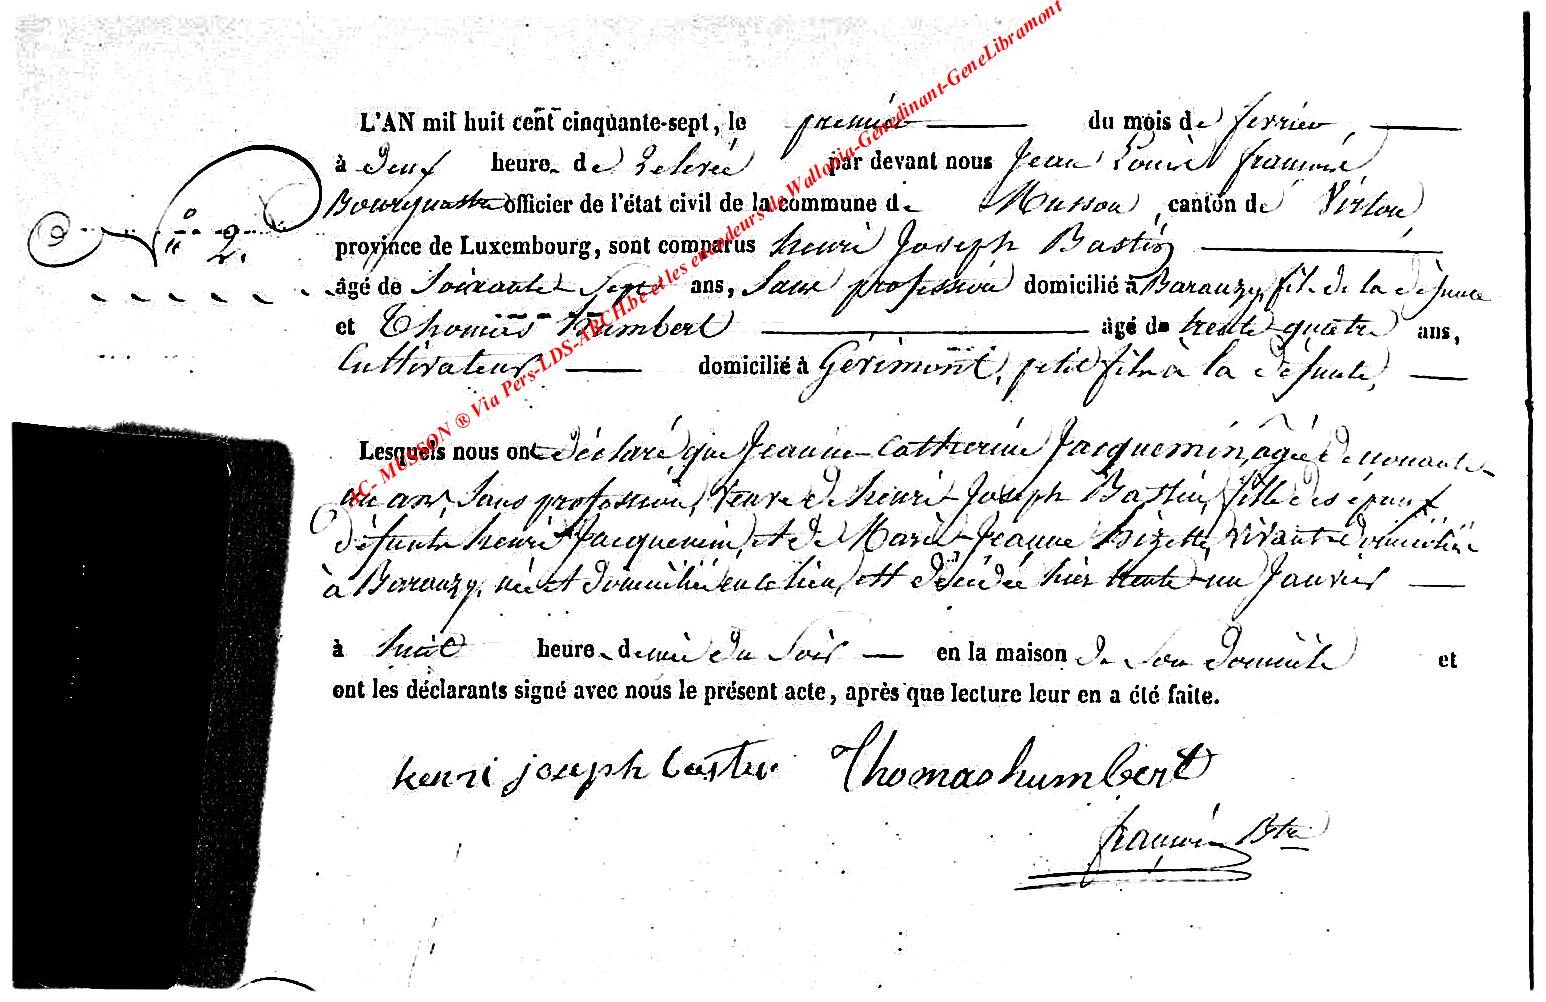 AC- MUSSON ® Via Pers-LDS-ARCH.be et les encodeurs de Wallonia-Genedinant-GeneLibramont
N° 2.
L'AN mil huit cent cinquante-sept, le premier du mois de ferrier,
à deux heure de relevée par devant nous Jean Louis françois
Bourguation officier de l'état civil de la commune de Musson, canton de Virton,
province de Luxembourg, sont comparus henri Joseph Bastin
âgé de Soixante Sept ans, Sans profession domicilié à Baranzy, fils de la défunte
et Thomas humbert âgé de trente quatre ans,
Cultivateur domicilié à Gérimont, petit fils à la défunte,
Lesquels nous ont déclaré que Jeanne Catherine Jacquemin, agée de nonante
un ans, Sans profession, veuve de henri Joseph Bastin, fille des époux
défunts henri Jacquemin, et de Marie Jeanne hizette, vivant domiciliés
à Baranzy, née et domiciliée en ce lieu, est décédée hier trente un Janvier
à huit heure demie du Soir en la maison de Son domicile et
ont les déclarants signé avec nous le présent acte, après que lecture leur en a été faite.
henri joseph bastin Thomas humbert
françois Btre